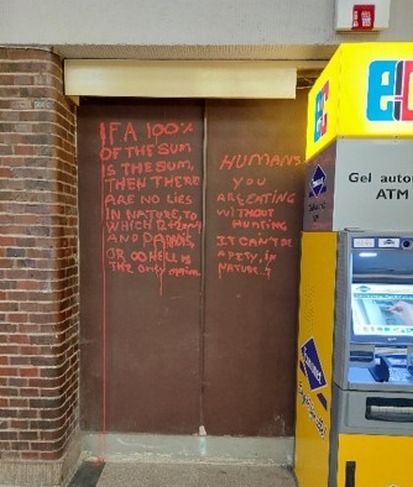 IF A 100%
OF THE SUM
IS THE SUM,
THEN THERE
ARE NO LIES
IN NATURE, TO
WHICH
AND
OR HELL IS
THE only option
HUMANS
YOU
ARE EATING
WITHOUT
HUNTING
IT CAN'T BE
A PITY, IN
NATURE.
Gel auto
ATM